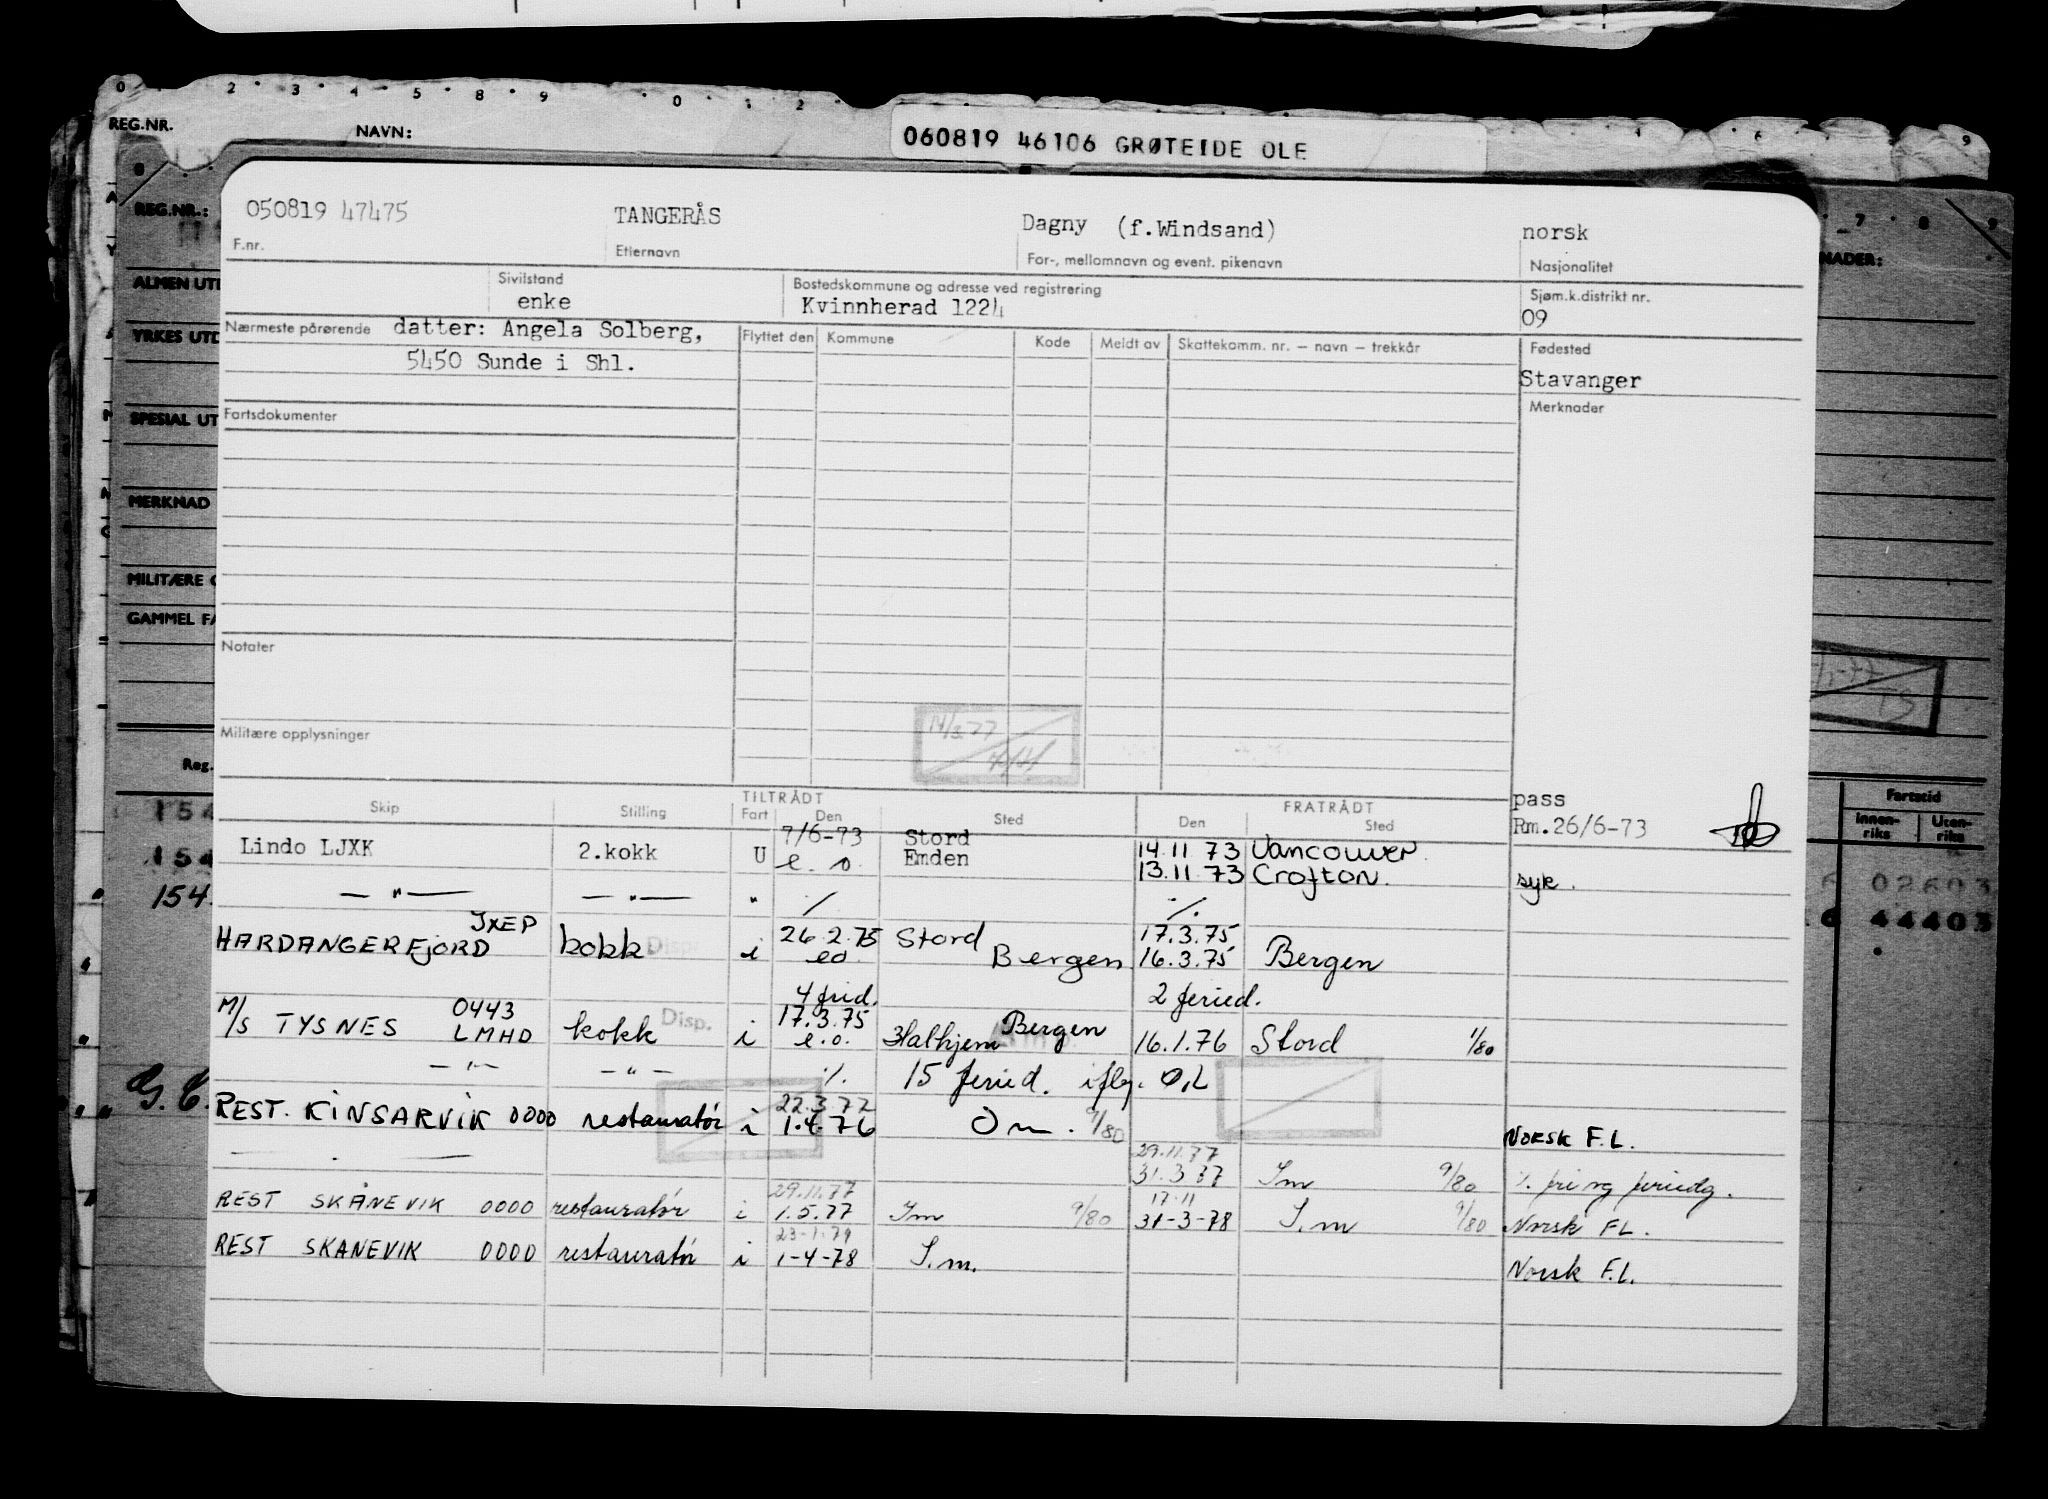 REG.NR. NAVN: 060819 46106 GRØTEIDE OLE
REG.NR.:
ALMEN UT
YRKES UTD
SPESIAL UT
MERKNAD
MILITÆRE
GAMMEL FA
Reg.
NADER:
Fartstid
Innen-riks Uten-riks
154
154
154
02603
44403
050819 47475 TANGERÅS Dagny (f.Windsand) norsk
F.nr. Etternavn For-, mellomnavn og event. pikenavn Nasjonalitet
Sivilstand Bostedskommune og adresse ved registrering Sjøm.k.distrikt nr.
enke Kvinnherad 1224 09
Nærmeste pårørende datter: Angela Solberg, Flyttet den Kommune Kode Meldt av Skattekomm. nr. – navn – trekkår Fødested
5450 Sunde i Shl. Stavanger
Fartsdokumenter Merknader
Notater
Militære opplysninger
TILTRÅDT FRATRÅDT pass
Skip Stilling Fart Den Sted Den Sted Rm.26/6-73
7/6-73 Stord
Lindo LJXK 2.kokk U e. o. Emden 14.11 73 Vancouver.
13.11 73 Crofton. syk.
— " — — " — " / /.
JXEP 26.2.75 Stord 17.3.75
HARDANGERFJORD kokk Disp. i eo. Bergen 16.3.75 Bergen
4 frid. 2 feried.
M/S TYSNES 0443 17.3.75 Bergen
LMHD kokk Disp. i e.o. Halhjem 16.1.76 Stord 1/80
— " — — " — /. 15 feried. iflg. O,L
22.3.77
REST. KINSARVIK 0000 restauratør i 1.4.76 Om. 9/80 NORSK F.L.
29.11.77
31.3.77 Im 9/80 /. fri og feriedg.
29.11.77 17.11
REST SKÅNEVIK 0000 restauratør i 1.5.77 Im 9/80 31-3-78 I.m 9/80 Norsk FL.
23-1-79
REST SKANEVIK 0000 restauratør i 1-4-78 I.m. Norsk F.L.